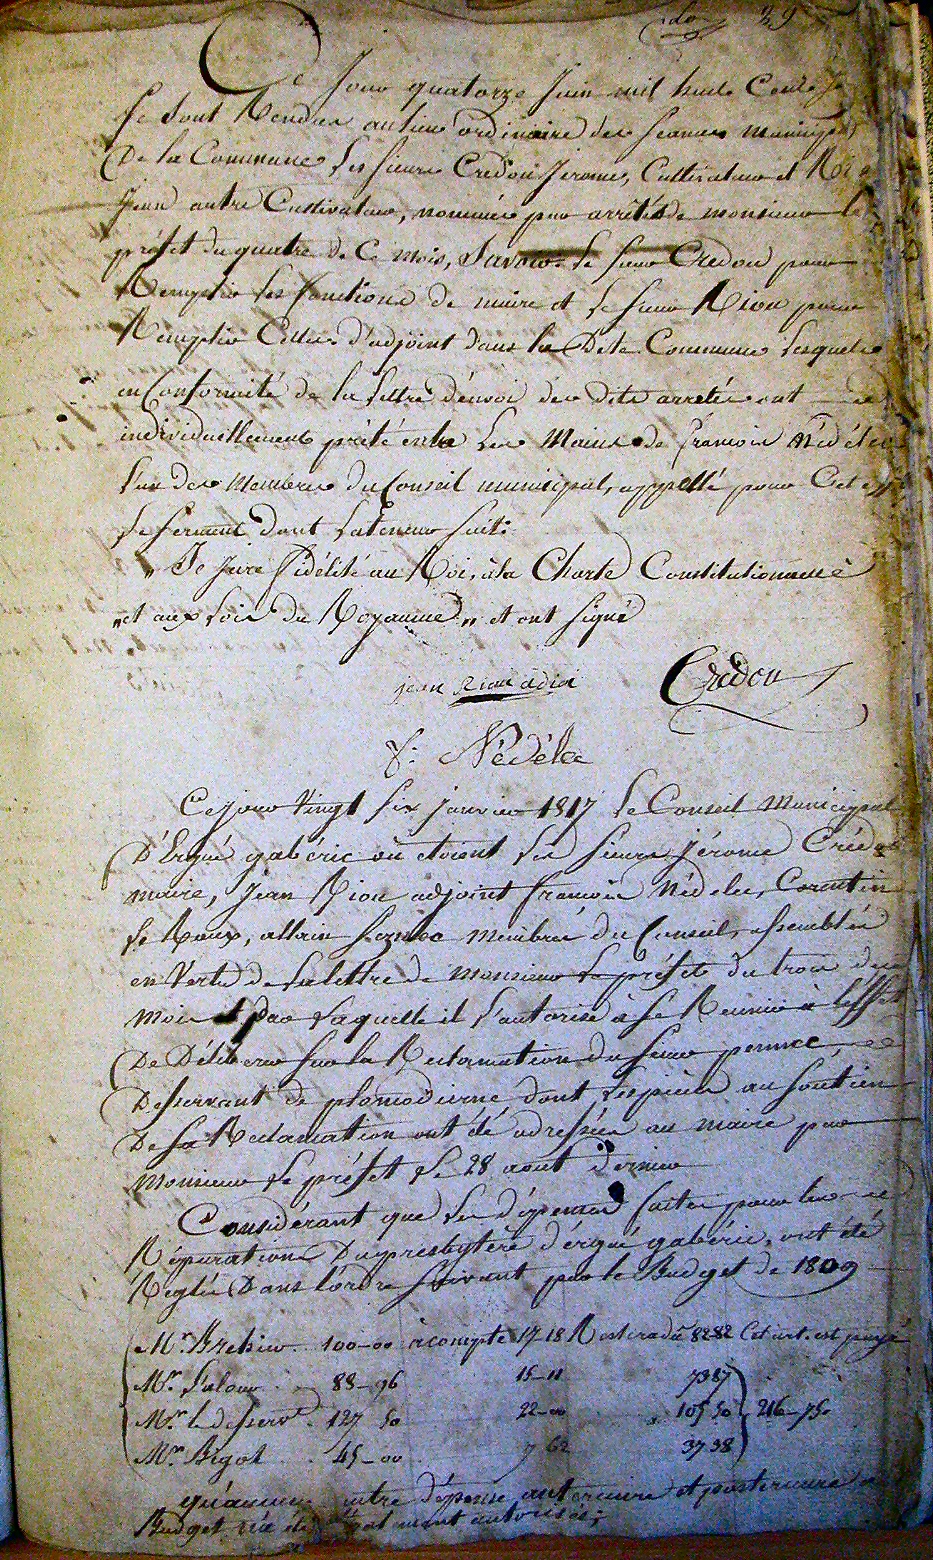 do 29
Ce Jour quatorze Juin mil huit Cent
se sont Rendus au lieu ordinaire des seances municip
De la Commune les sieurs Crédou Jerome, Cultivateur et Rio
Jean autre Cultivateur, nommés par arrêtés de monsieur le
préfet du quatre de C mois, Savoir le sieur Credou pour
Remplir les fonctions de maire et le sieur Riou pour
Remplir Celles d'adjoint dans la Dite Commune lesquels
en Conformité de la lettre d'envoi des dits arretés ont
individuellement prêté entre Les Mains de françois Nédélec
l'un des Membres du Conseil municipal, appellé pour Cet
le serment dont la teneur suit:
„ Je Jure fidélité au Roi, à la Charte Constitutionnelle
„ et aux loix du Royaume „ et ont signé
jean Riou adjoi
Credou
f: Nédélec
Ce jour Vingt six janvier 1817 le Conseil Municipal
D'Ergué gabéric où etoient les sieurs Jérome Crédou
maire, Jean Riou adjoint françois Nédelec, Corentin
le Roux, allain membres du Conseil, assemblés
en Vertu de la lettre de Monsieur le préfet du trois du
Mois par laquelle il l'autorise à se Reunir à l'effet
De Déliberer sur la Reclamation du sieur pennec
Desservant de plomodierne dont les pièces au soutien
De sa Reclamation ont été adressées au maire par
Monsieur le préfet le 28 aout Dernier
Considérant que les dépenses faites pour les
Réparations Du presbytère d'ergué gabéric, ont été
Réglées Dans l'ordre suivant par le Budget de 1809
Mr. Brehier 100-00 à compte 17-18 Restera dû 82 82 Cet art. est payé
Mr. Salou 88-96 15-11 73 87
Mr. le desserv. 127 50 22-00 105 50 216-750
Mr. Bigot 45-00 7 62 37 38
qu'aucune autre dépense anterieure et posterieure
Budget n'a été autorisée;